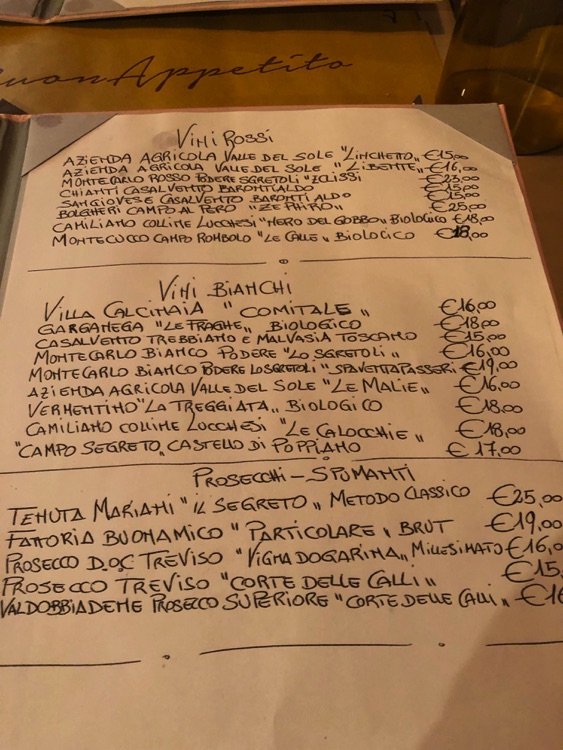 Buon Appetito
VINI ROSSI
AZIENDA AGRICOLA VALLE DEL SOLE "LINCHETTO„ €15,00
AZIENDA AGRICOLA VALLE DEL SOLE "LIBENTE„ €16,00
MONTECARLO ROSSO PODERE SGRETOLI "ECLISSI €23,00
CHIANTI CASALVENTO BARONTI ALDO €15,00
SANGIOVESE CASALVENTO BARONTI ALDO €15,00
BOLGHERI CAMPO AL PERO "ZEPHIRO„ €25,00
CAMILIANO COLLINE LUCCHESI "NERO DEL GOBBO„ BIOLOGICO €18,00
MONTECUCCO CAMPO ROMBOLO "LE CALLE„ BIOLOGICO €18,00
VINI BIANCHI
VILLA CALCINAIA "COMITALE„ €16,00
GARGANEGA "LE FRAGHE„ BIOLOGICO €18,00
CASALVENTO TREBBIANO E MALVASIA TOSCANO €15,00
MONTECARLO BIANCO PODERE "LO SGRETOLI„ €16,00
MONTECARLO BIANCO PODERE LO SGRETOLI" SPAVENTAPASSERI €19,00
AZIENDA AGRICOLA VALLE DEL SOLE "LE MALIE„ €16,00
VERMENTINO "LA TREGGIATA„ BIOLOGICO €18,00
CAMILIANO COLLINE LUCCHESI "LE CALOCCHIE„ €18,00
"CAMPO SEGRETO„ CASTELLO DI POPPIANO €17,00
PROSECCHI-SPUMANTI
TENUTA MARIANI "IL SEGRETO„ METODO CLASSICO €25,00
FATTORIA BUONAMICO "PARTICOLARE„ BRUT €19,00
PROSECCO D.O.C TREVISO "VIGNA DOGARINA„ MILLESIMATO €16,0
PROSECCO TREVISO "CORTE DELLE CALLI„ €15,
VALDOBBIADENE PROSECCO SUPERIORE "CORTE DELLE CALLI„ €16